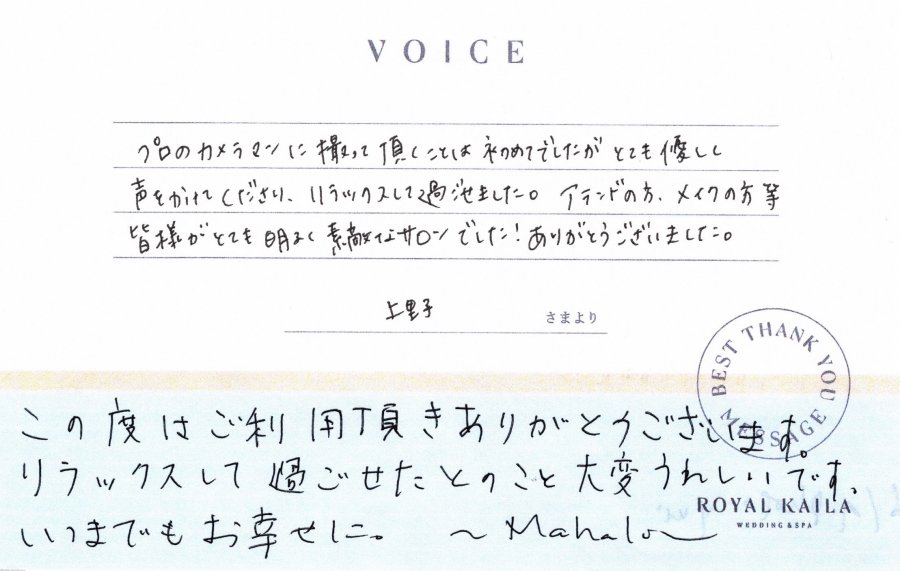 VOICE
プロのカメラマンに撮って頂くことは初めてでしたがとても優しく
声をかけてくださり、リラックスして過ごせました。アテンドの方、メイクの方等
皆様がとても明るく素敵なサロンでした!ありがとうございました。
上里子 さまより
BEST THANK YOU MESSAGE
この度はご利用頂きありがとうございます。
リラックスして過ごせたとのこと大変うれしいです。
ROYAL KAILA
WEDDING & SPA
いつまでもお幸せに。 ~Mahalo~